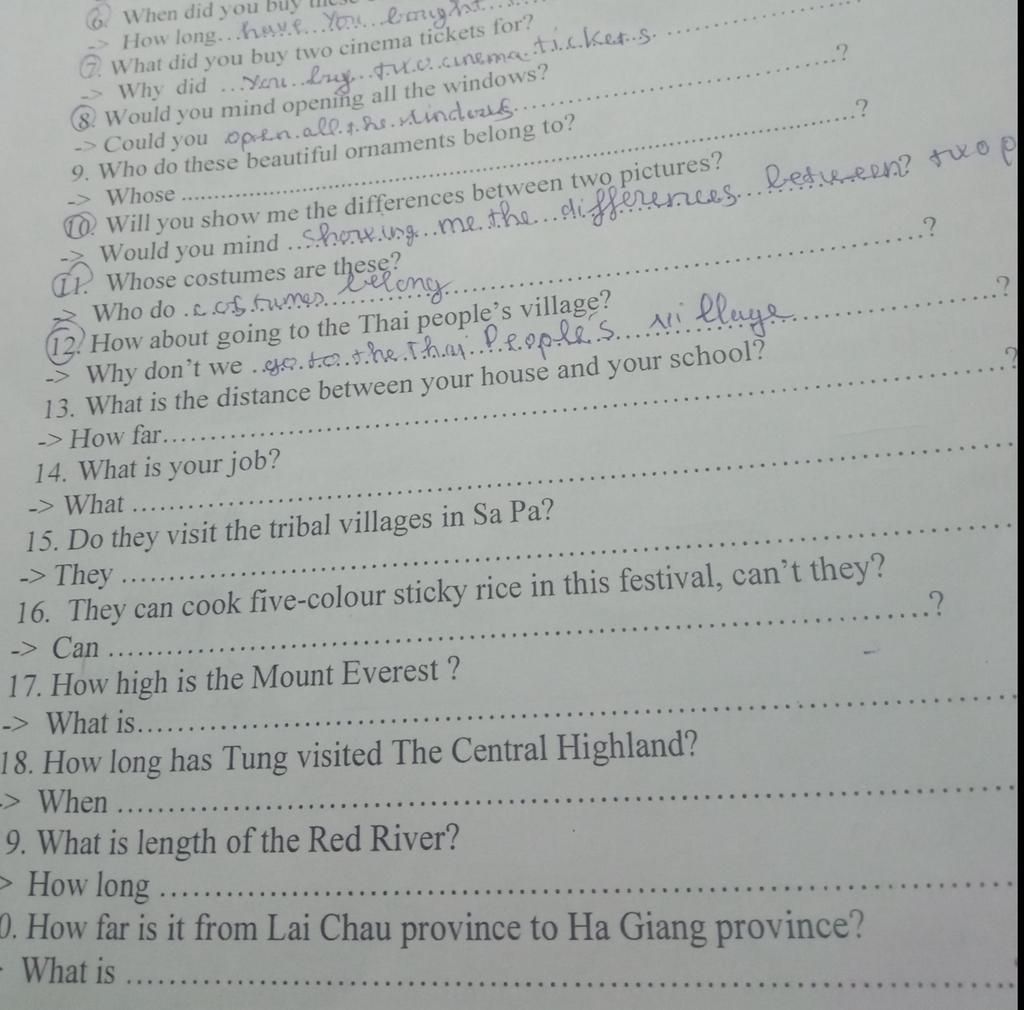 6. When did you buy
-> How long...have...You...bought...
7. What did you buy two cinema tickets for?
-> Why did ...You buy two cinema tickers.
8. Would you mind opening all the windows?
-> Could you open all the windows.......?
9. Who do these beautiful ornaments belong to?
-> Whose .......?
10. Will you show me the differences between two pictures?
-> Would you mind ..showing me the differences between? two p
11. Whose costumes are these?
-> Who do costumes belong.......?
12. How about going to the Thai people's village?
-> Why don't we ..go to the Thai People's village.......?
13. What is the distance between your house and your school?
-> How far.......?
14. What is your job?
-> What .......
15. Do they visit the tribal villages in Sa Pa?
-> They .......
16. They can cook five-colour sticky rice in this festival, can't they?
-> Can .......?
17. How high is the Mount Everest ?
-> What is.......
18. How long has Tung visited The Central Highland?
-> When .......
9. What is length of the Red River?
> How long .......
0. How far is it from Lai Chau province to Ha Giang province?
What is .......